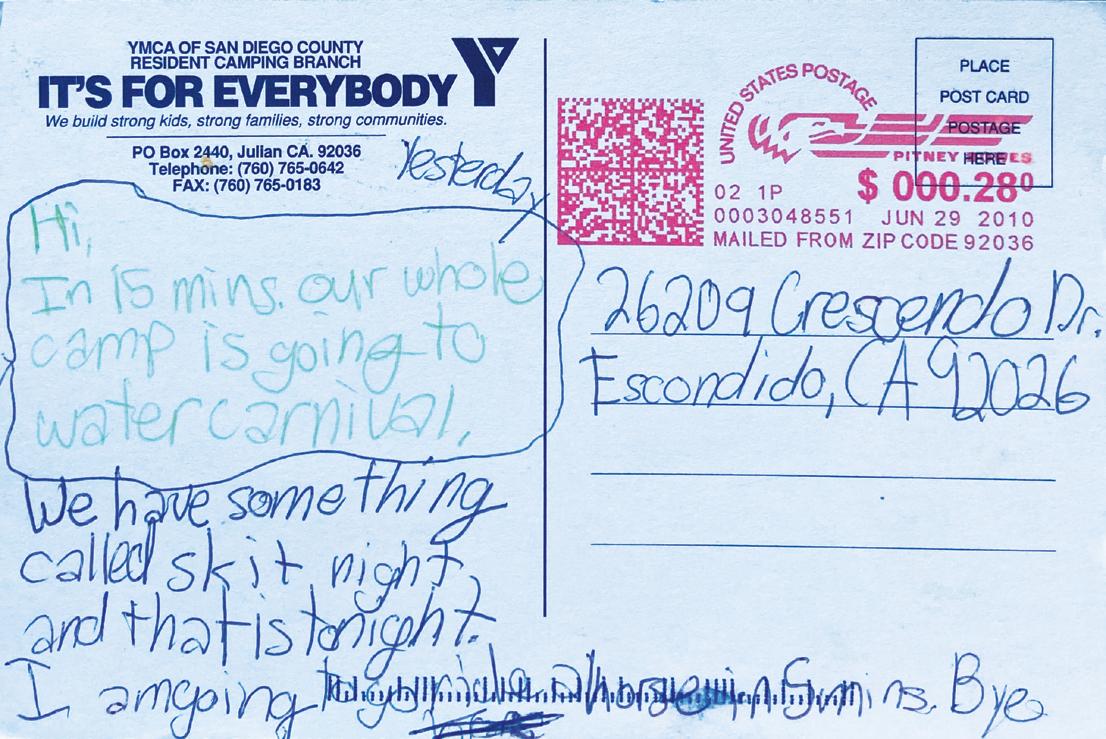 YMCA OF SAN DIEGO COUNTY
RESIDENT CAMPING BRANCH
IT'S FOR EVERYBODY
We build strong kids, strong families, strong communities.
PO Box 2440, Julian CA. 92036
Telephone: (760) 765-0642
FAX: (760) 765-0183
Yesterday
Hi,
In 15 mins. our whole
camp is going to
water carnival.
We have something
called skit night,
and that is tonight.
I am going to go ride a horse in 5 mins. Bye
UNITED STATES POSTAGE
PITNEY BOWES
02 1P $ 000.28⁰
0003048551 JUN 29 2010
MAILED FROM ZIP CODE 92036
PLACE
POST CARD
POSTAGE
HERE
26209 Crescendo Dr.
Escondido, CA 92026